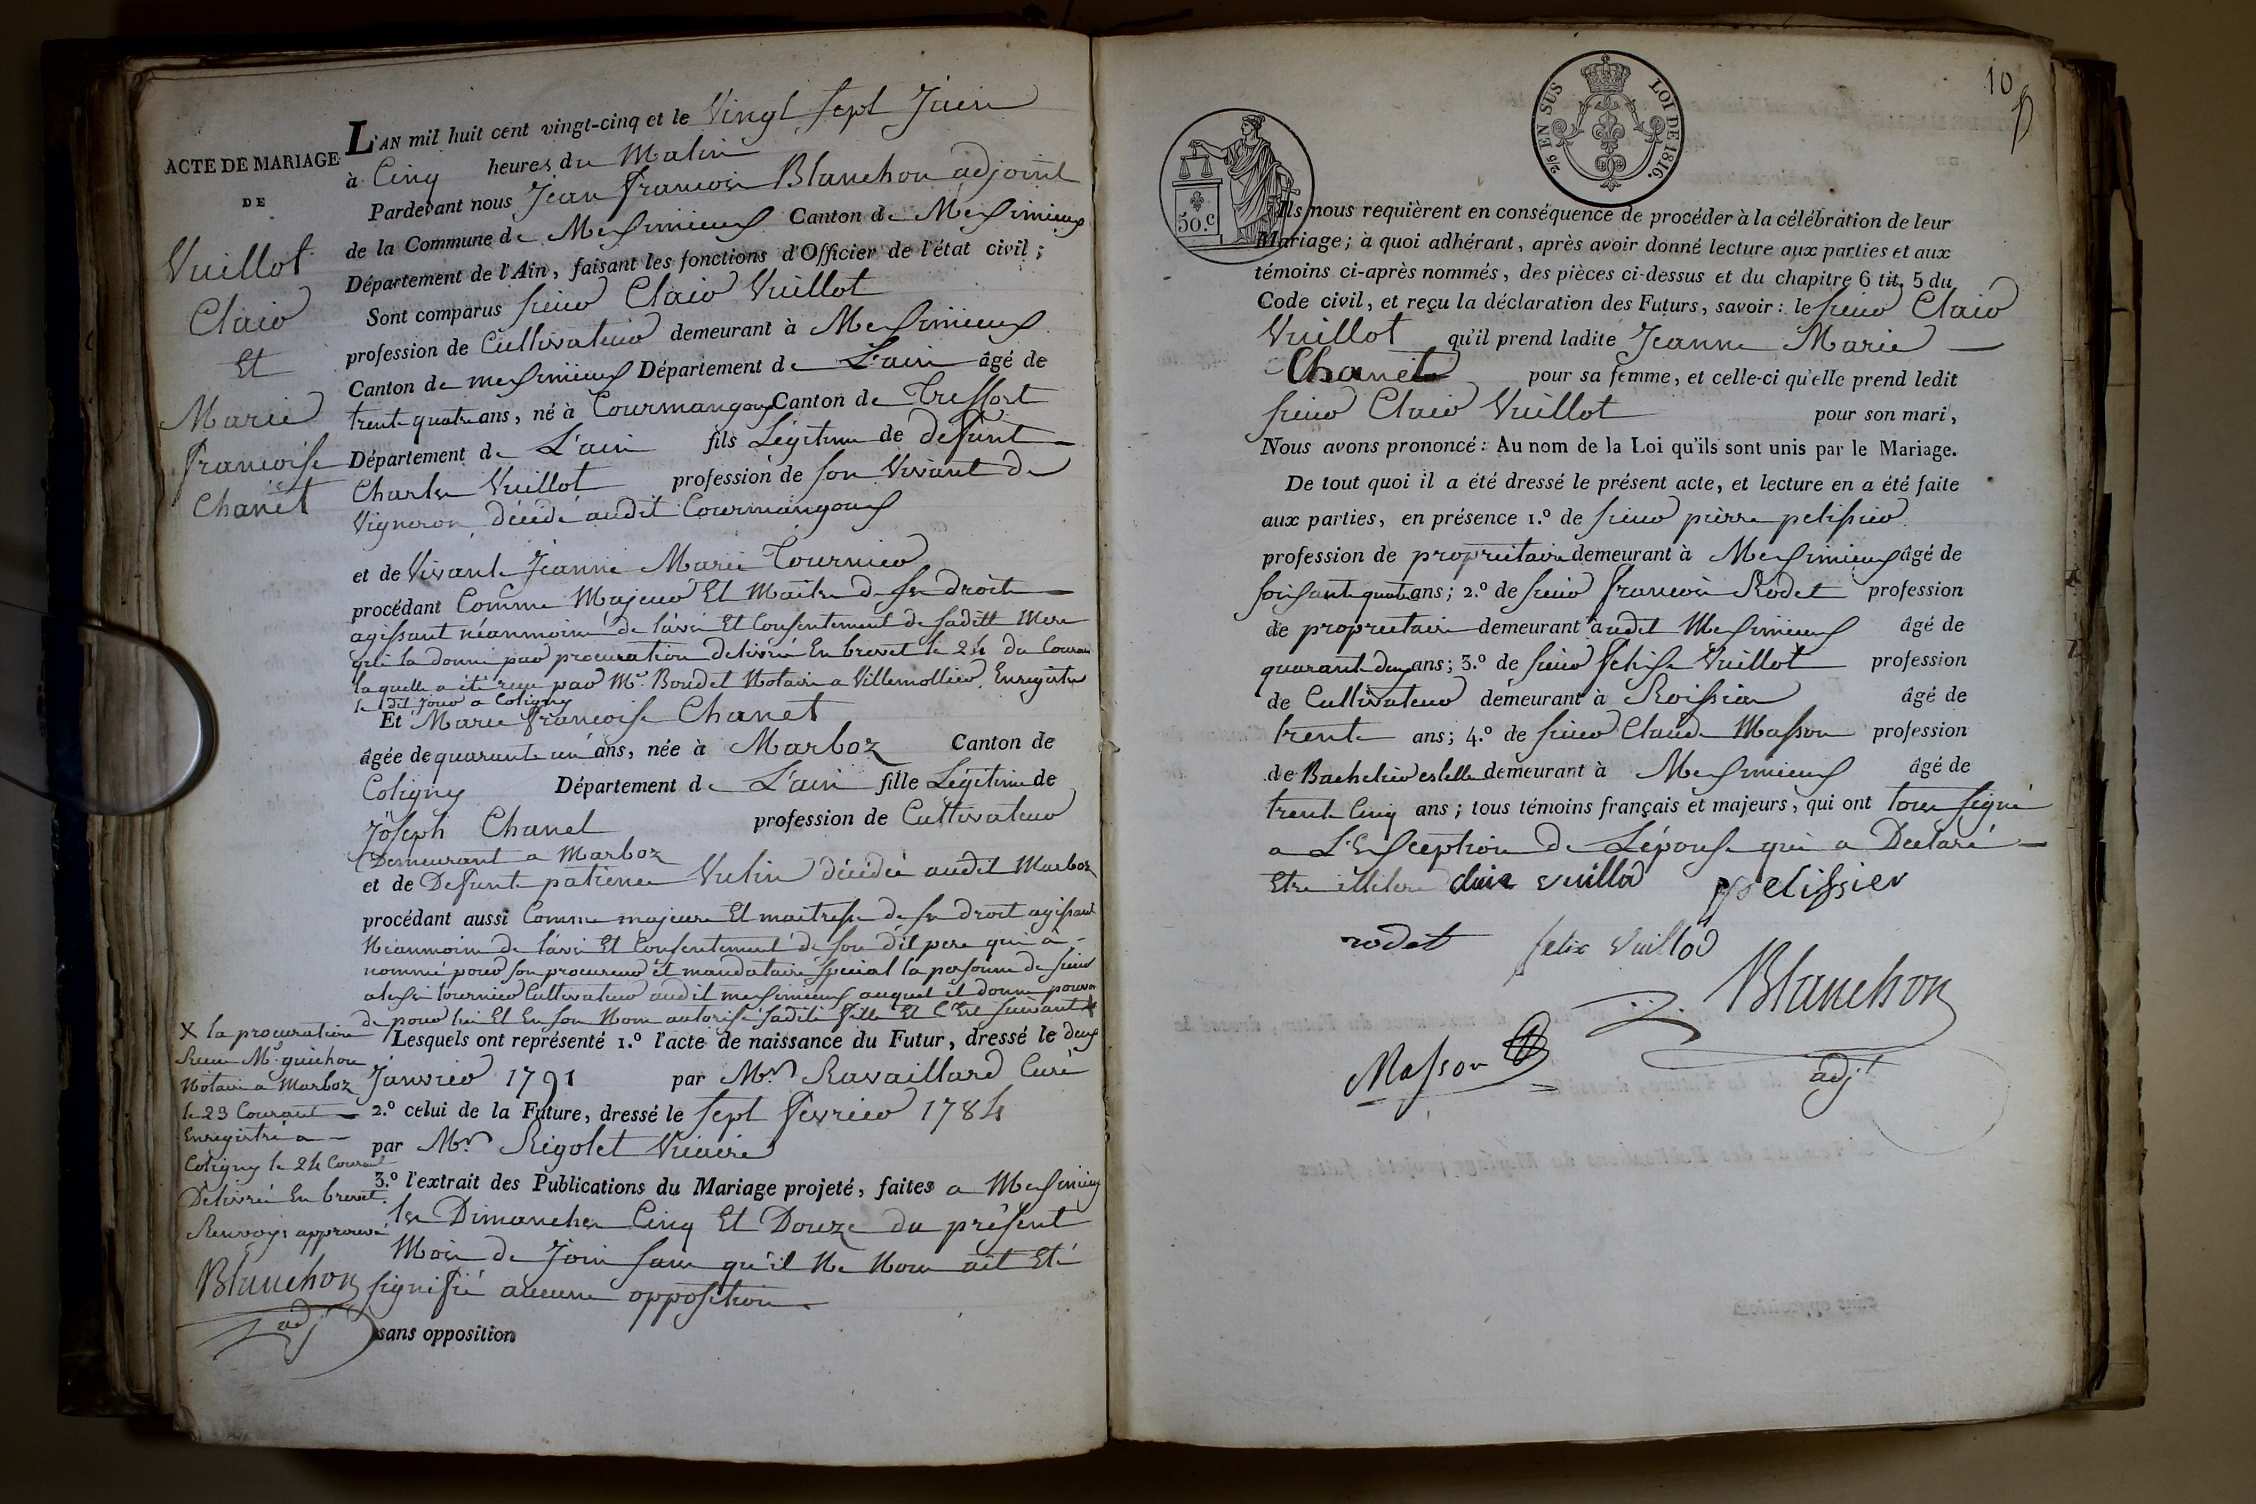 ACTE DE MARIAGE
DE
Vuillot
Clair
Et
Marie
francoise
Chanel
L'AN mil huit cent vingt-cinq et le Vingt sept Juin
à Cinq heures du Matin
Pardevant nous Jean francois Blanchon adjoint
de la Commune de Meximieux Canton de Meximieux
Département de l'Ain, faisant les fonctions d'Officier de l'état civil;
Sont comparus sieur Clair Vuillot
profession de Cultivateur demeurant à Meximieux
Canton de meximieux Département de L'ain âgé de
trente quatre ans, né à Courmangoux Canton de Treffort
Département de L'ain fils Légitime de defunt
Charles Vuillot profession de son Vivant de
Vigneron décédé audit Courmangoux
et de Vivante Jeanne Marie Tournier
procédant Comme Majeur Et Maitre de ses droits
agissant néanmoins de l'avis Et Consentement de sadite Mere
qui la donné par procuration delivrée En brevet le 24 du Courant
laquelle a été reçue par Me Boudet Notaire a Villemottier, Enregistré
le dit Jour a Coligny
Et Marie francoise Chanel
âgée de quarante un ans, née à Marboz Canton de
Coligny Département de L'ain fille Légitime de
Joseph Chanel profession de Cultivateur
Demeurant a Marboz
et de Defunte patience Vulin décédée audit Marboz
procédant aussi Comme majeure Et maitresse de ses droit agissant
Néanmoins de l'avis Et Consentement de son dit pere qui a
nommé pour son procureur et mandataire special la personne de sieur
alexis tournier Cultivateur audit meximieux auquel il donne pouvoir
de pour lui Et En son Nom autorisé sadite fille Et C Est suivant X
Lesquels ont représenté 1.º l'acte de naissance du Futur, dressé le deux
Janvier 1791 par Mr. Ravaillard Curé
2.º celui de la Future, dressé le sept fevrier 1784
par Mr. Rigolet Vicaire
3.º l'extrait des Publications du Mariage projeté, faites a Meximieux
les Dimanches Cinq Et Douze du présent
Mois de Join sans qu'il Ne Nous ait Eté
signifié aucune opposition.
sans opposition
X la procuration
Recue Me guichon
Notaire a Marboz
le 23 Courant
Enregistré a
Coligny le 24 Courant
Délivrée En brevet.
Renvoys approuvé
Blanchon
adjt
10
2/5 EN SUS LOI DE 1816.
50.c
Ils nous requièrent en conséquence de procéder à la célébration de leur
Mariage; à quoi adhérant, après avoir donné lecture aux parties et aux
témoins ci-après nommés, des pièces ci-dessus et du chapitre 6 tit. 5 du
Code civil, et reçu la déclaration des Futurs, savoir: le sieur Clair
Vuillot qu'il prend ladite Jeanne Marie
Chanel pour sa femme, et celle-ci qu'elle prend ledit
sieur Clair Vuillot pour son mari,
Nous avons prononcé: Au nom de la Loi qu'ils sont unis par le Mariage.
De tout quoi il a été dressé le présent acte, et lecture en a été faite
aux parties, en présence 1.º de sieur pierre pelissier
profession de proprietaire demeurant à Meximieux âgé de
soixante quatre ans; 2.º de sieur francois Rodet profession
de proprietaire demeurant audit Meximieux âgé de
quarante deux ans; 3.º de sieur felix Vuillot profession
de Cultivateur demeurant à Roissiar âgé de
trente ans; 4.º de sieur Claude Masson profession
de Bachelier es lettre demeurant à Meximieux âgé de
trente Cinq ans; tous témoins français et majeurs, qui ont tous signé
a L'Exception de Lépouse qui a Déclaré
Etre illeterée clair vuillod ppelissier
rodet felix Vuillod
Blanchon
Masson
adjt